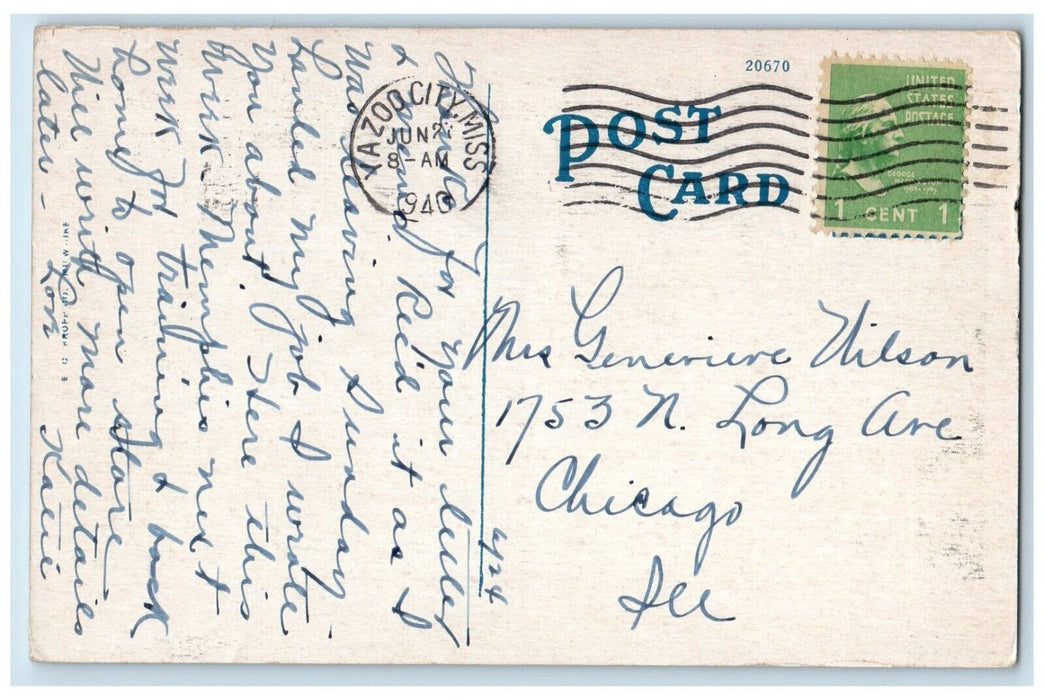 20670
POST
CARD
UNITED
STATES
POSTAGE
GEORGE
WASHINGTON
1 CENT 1
YAZOO CITY, MISS
JUN
8-AM
1940
Mrs Genevieve Wilson
1753 N. Long Ave
Chicago
Ill
6/24
Thank for your letter
& Rec'd it as I
was leaving Sunday
Landed my job I wrote
you about. Here this
week Memphis next
week for training & back
home to open store
Will write more details
later - Love Katie